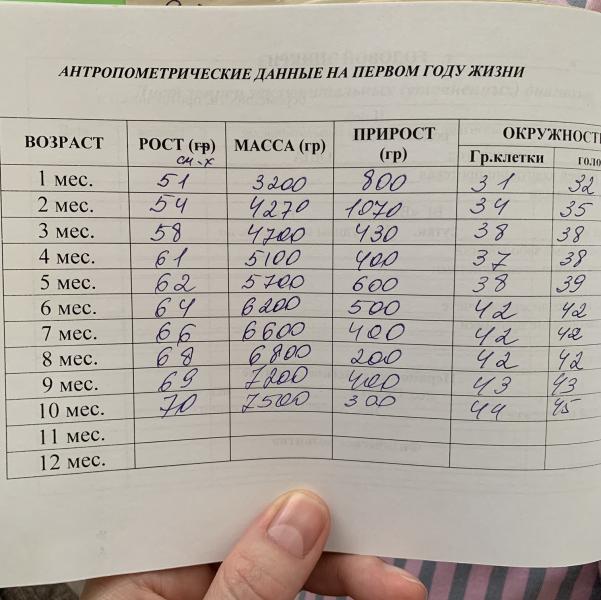 АНТРОПОМЕТРИЧЕСКИЕ ДАННЫЕ НА ПЕРВОМ ГОДУ ЖИЗНИ
ВОЗРАСТ РОСТ (гр) МАССА (гр) ПРИРОСТ (гр) ОКРУЖНОСТ
см-х Гр.клетки голо
1 мес. 51 3200 800 31 32
2 мес. 54 4270 1070 34 35
3 мес. 58 4700 430 38 38
4 мес. 61 5100 400 37 38
5 мес. 62 5700 600 38 39
6 мес. 64 6200 500 42 42
7 мес. 66 6600 400 42 42
8 мес. 68 6800 200 42 42
9 мес. 69 7200 400 43 43
10 мес. 70 7500 300 44 45
11 мес.
12 мес.